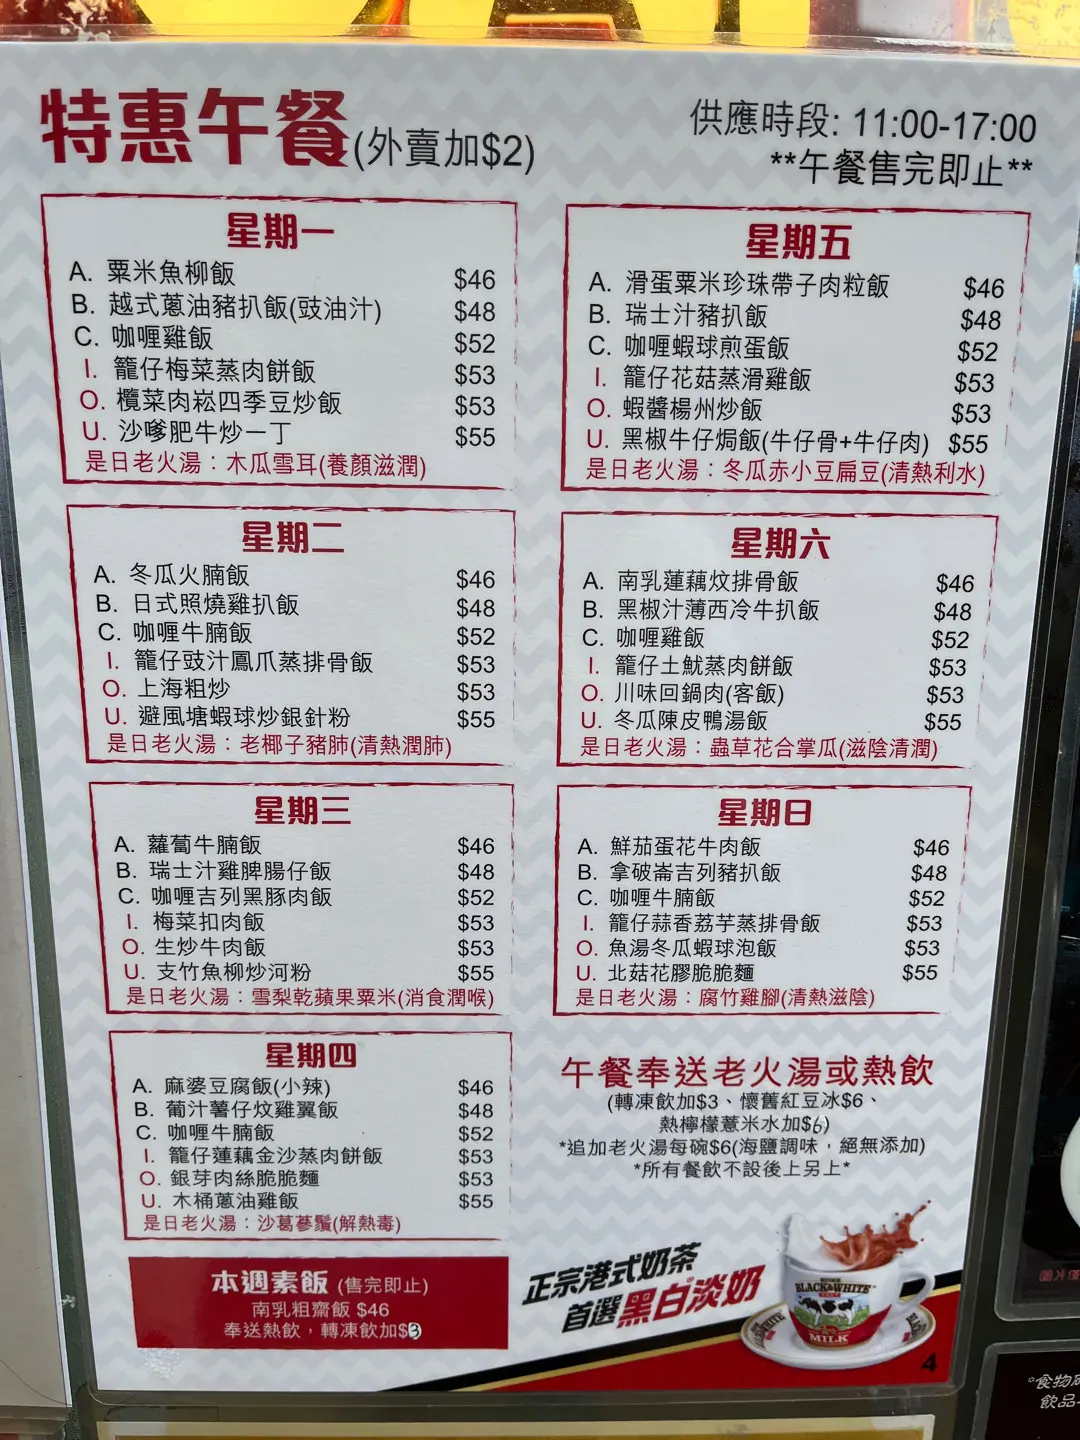 特惠午餐(外賣加$2)
供應時段: 11:00-17:00
**午餐售完即止**
星期一
A. 粟米魚柳飯 $46
B. 越式蔥油豬扒飯(豉油汁) $48
C. 咖喱雞飯 $52
I. 籠仔梅菜蒸肉餅飯 $53
O. 欖菜肉崧四季豆炒飯 $53
U. 沙嗲肥牛炒一丁 $55
是日老火湯：木瓜雪耳(養顏滋潤)
星期二
A. 冬瓜火腩飯 $46
B. 日式照燒雞扒飯 $48
C. 咖喱牛腩飯 $52
I. 籠仔豉汁鳳爪蒸排骨飯 $53
O. 上海粗炒 $53
U. 避風塘蝦球炒銀針粉 $55
是日老火湯：老椰子豬肺(清熱潤肺)
星期三
A. 蘿蔔牛腩飯 $46
B. 瑞士汁雞脾腸仔飯 $48
C. 咖喱吉列黑豚肉飯 $52
I. 梅菜扣肉飯 $53
O. 生炒牛肉飯 $53
U. 支竹魚柳炒河粉 $55
是日老火湯：雪梨乾蘋果粟米(消食潤喉)
星期四
A. 麻婆豆腐飯(小辣) $46
B. 葡汁薯仔炆雞翼飯 $48
C. 咖喱牛腩飯 $52
I. 籠仔蓮藕金沙蒸肉餅飯 $53
O. 銀芽肉絲脆脆麵 $53
U. 木桶蔥油雞飯 $55
是日老火湯：沙葛蔘鬚(解熱毒)
本週素飯 (售完即止)
南乳粗齋飯 $46
奉送熱飲，轉凍飲加$3
星期五
A. 滑蛋粟米珍珠帶子肉粒飯 $46
B. 瑞士汁豬扒飯 $48
C. 咖喱蝦球煎蛋飯 $52
I. 籠仔花菇蒸滑雞飯 $53
O. 蝦醬楊州炒飯 $53
U. 黑椒牛仔焗飯(牛仔骨+牛仔肉) $55
是日老火湯：冬瓜赤小豆扁豆(清熱利水)
星期六
A. 南乳蓮藕炆排骨飯 $46
B. 黑椒汁薄西冷牛扒飯 $48
C. 咖喱雞飯 $52
I. 籠仔土魷蒸肉餅飯 $53
O. 川味回鍋肉(客飯) $53
U. 冬瓜陳皮鴨湯飯 $55
是日老火湯：蟲草花合掌瓜(滋陰清潤)
星期日
A. 鮮茄蛋花牛肉飯 $46
B. 拿破崙吉列豬扒飯 $48
C. 咖喱牛腩飯 $52
I. 籠仔蒜香荔芋蒸排骨飯 $53
O. 魚湯冬瓜蝦球泡飯 $53
U. 北菇花膠脆脆麵 $55
是日老火湯：腐竹雞腳(清熱滋陰)
午餐奉送老火湯或熱飲
(轉凍飲加$3、懷舊紅豆冰$6、
熱檸檬薏米水加$6)
*追加老火湯每碗$6(海鹽調味，絕無添加)
*所有餐飲不設後上另上*
正宗港式奶茶
首選黑白淡奶
BLACK&WHITE
MILK
4
*食物
飲品